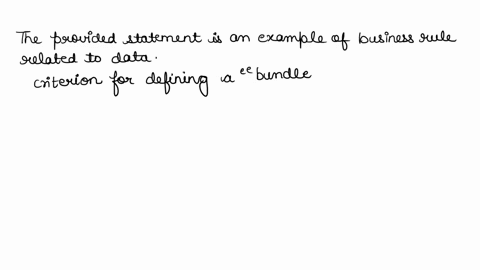 The provided statement is an example of business rule
related to data.
criterion for defining a “bundle